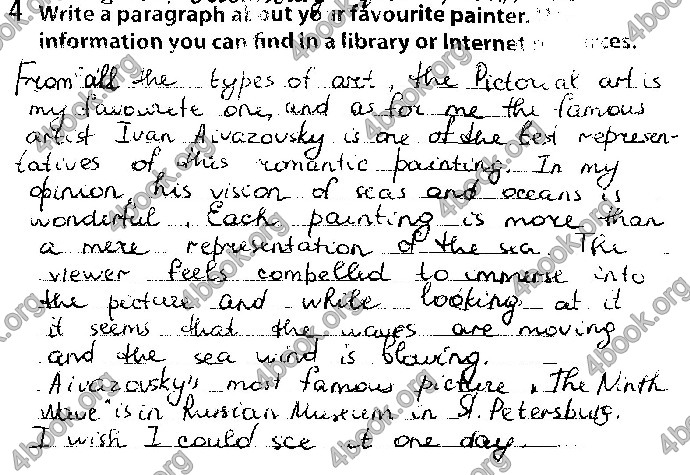 4 Write a paragraph about your favourite painter.
information you can find in a library or Internet
From all the types of art, the Pictorial art is
my favourite one, and as for me the famous
artist Ivan Aivazovsky is one of the best represen-
tatives of this romantic painting. In my
opinion, his vision of seas and oceans is
wonderful. Each painting is more than
a mere representation of the sea. The
viewer feels compelled to immerse into
the picture and while looking at it
it seems that the waves are moving
and the sea wind is blowing.
Aivazovsky's most famous picture "The Ninth
Wave" is in Russian Museum in St. Petersburg.
I wish I could see it one day.
4book.org